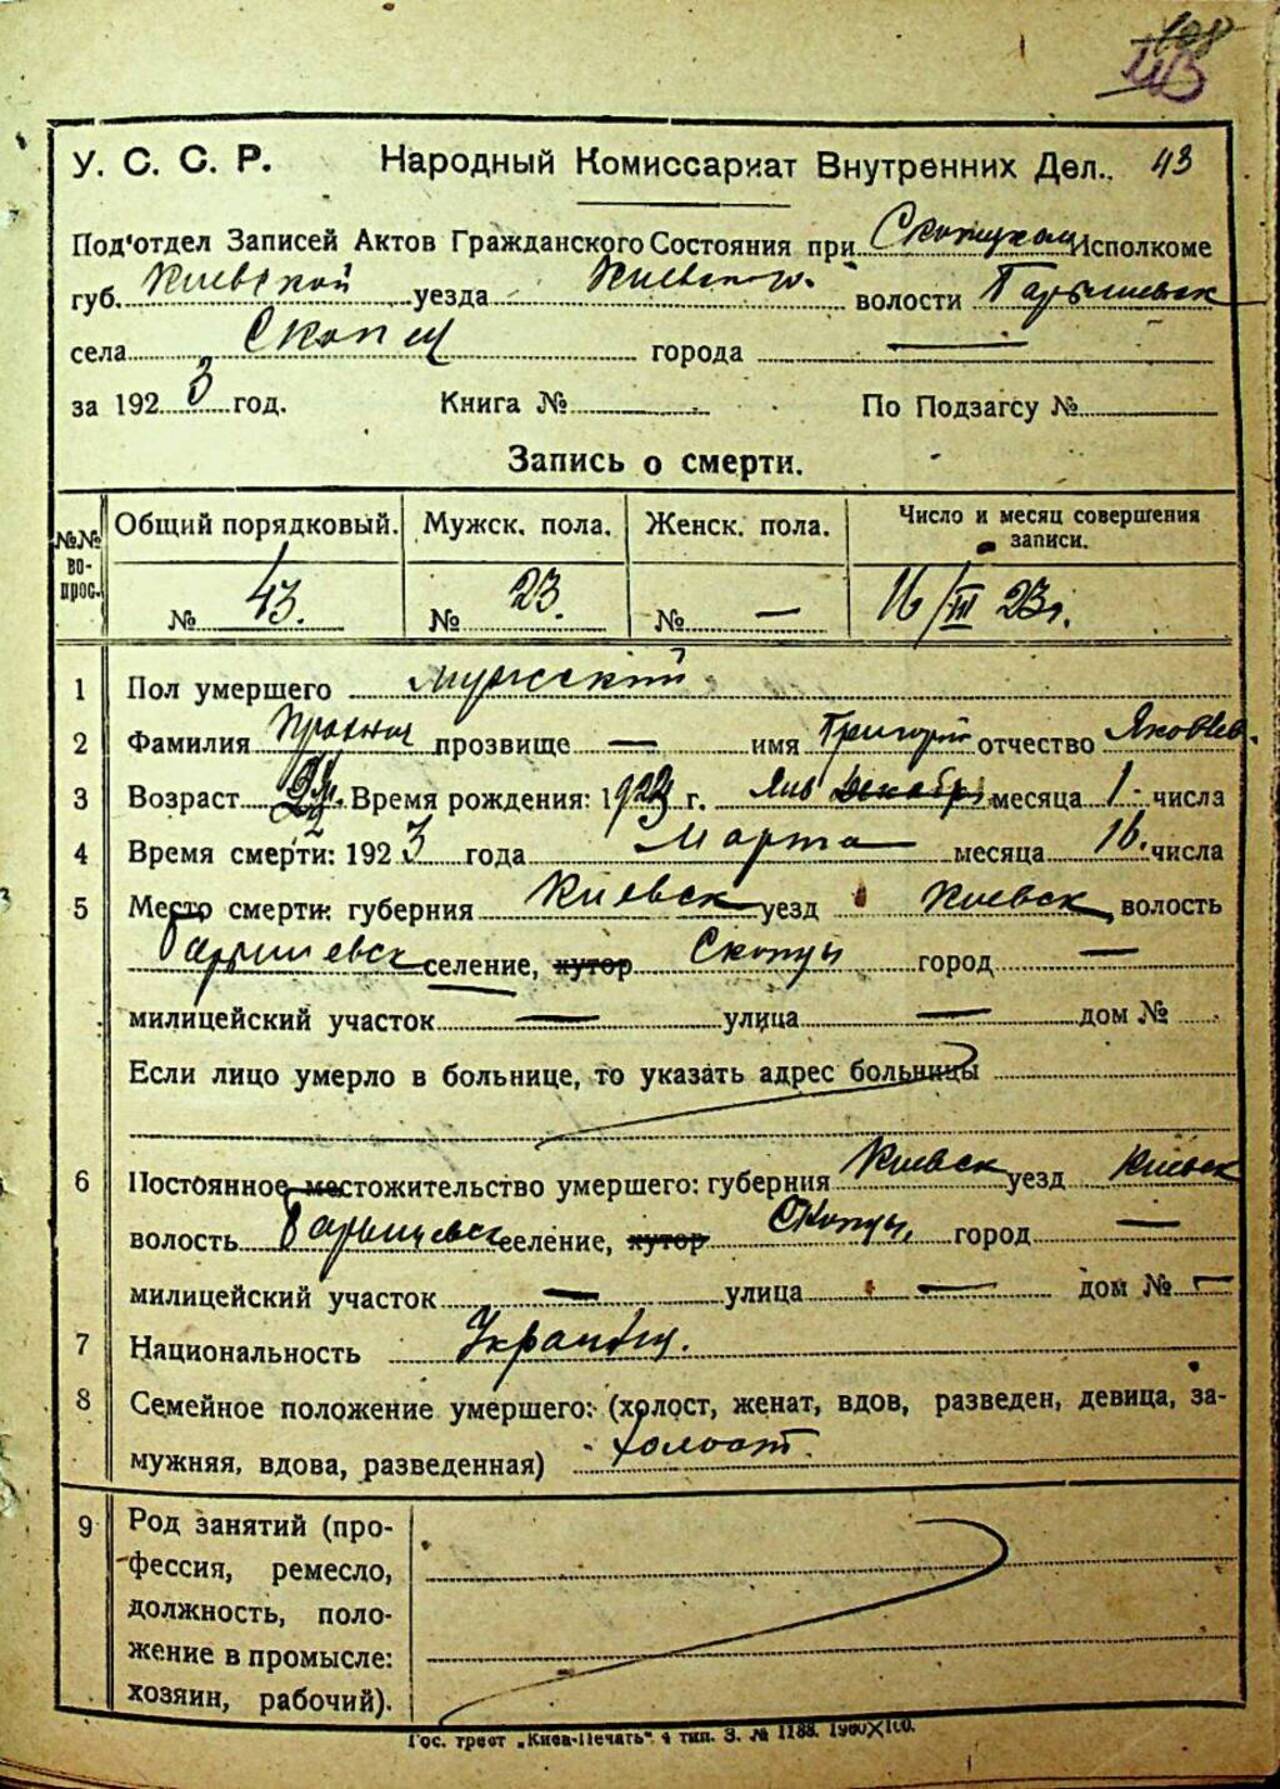 У. С. С. Р. Народный Комиссариат Внутренних Дел. 43
Под'отдел Записей Актов Гражданского Состояния при Исполкоме
губ. Киевской уезда волости
села Скопцы города —
за 1923 год. Книга № По Подзагсу №
Запись о смерти.
№№ во-прос. Общий порядковый. Мужск. пола. Женск. пола. Число и месяц совершения записи.
№ 43. № 23. № — 16/III 23 г.
1 Пол умершего мужской
2 Фамилия прозвище — имя Григорий отчество Яковлев.
3 Возраст Время рождения: 1923 г. Янв Декабр месяца 1 числа
4 Время смерти: 1923 года Марта месяца 16. числа
5 Место смерти: губерния Киевск уезд Киевск волость
Барышевск селение, хутор Скопцы город —
милицейский участок — улица — дом №
Если лицо умерло в больнице, то указать адрес больницы
6 Постоянное местожительство умершего: губерния Киевск уезд Киевск
волость Барышевск селение, хутор Скопцы, город —
милицейский участок — улица — дом № —
7 Национальность Украинец.
8 Семейное положение умершего: (холост, женат, вдов, разведен, девица, за-
мужняя, вдова, разведенная) холост.
9 Род занятий (про-
фессия, ремесло,
должность, поло-
жение в промысле:
хозяин, рабочий).
Гос. трест „Киев-Печать“. 4 тип. З. № 1188.